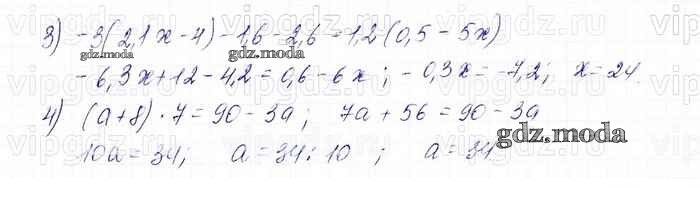 3) -3(2,1x-4)-1,6-2,6=1,2(0,5-5x)
-6,3x+12-4,2=0,6-6x; -0,3x=-7,2; x=24.
4) (a+8)·7=90-3a; 7a+56=90-3a
10a=34; a=34:10; a=34
gdz.moda
gdz.moda
gdz.moda